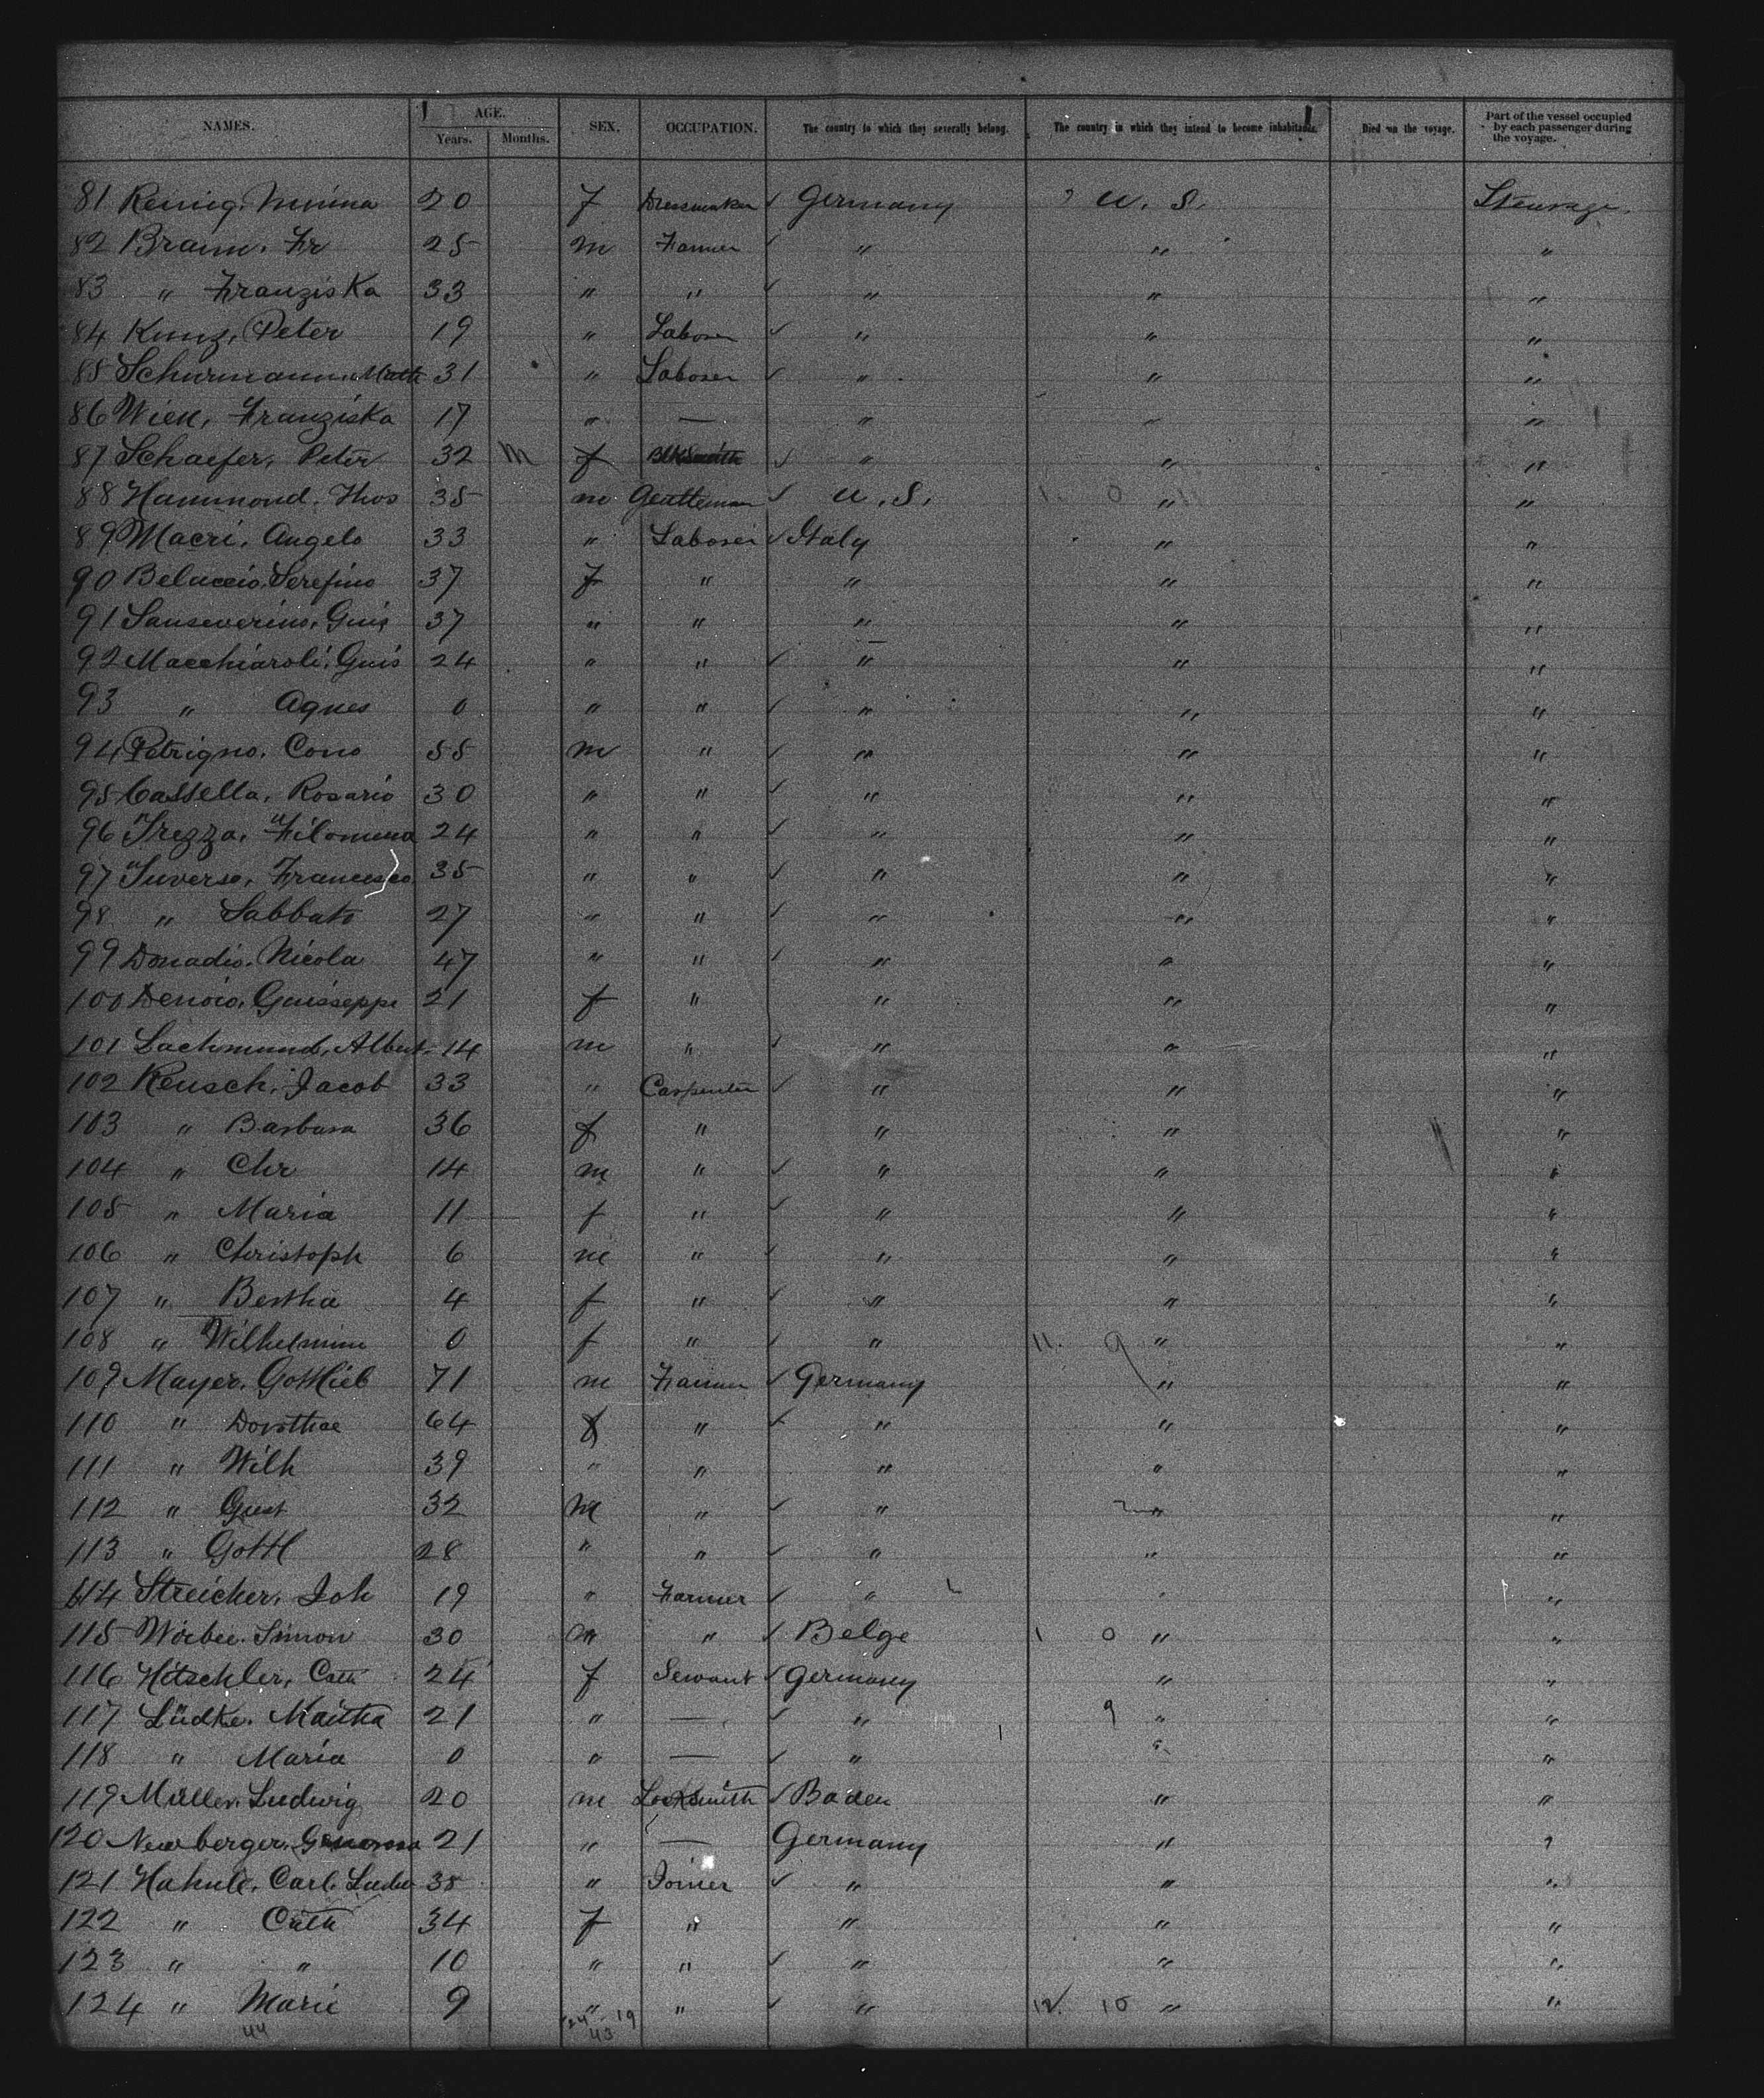 NAMES. AGE. SEX. OCCUPATION. The country to which they severally belong. The country in which they intend to become inhabitants. Died on the voyage. Part of the vessel occupied by each passenger during the voyage.
Years. Months.
81 Reinig, Minina 20 f Dressmaker ✓ Germany U. S. Steerage.
82 Braun, Fr 25 m Farmer ✓ " " "
83 " Franziska 33 " " ✓ " " "
84 Kunz, Peter 19 " Laborer ✓ " " "
85 Schurmann, Math 31 " Laborer ✓ " " "
86 Wien, Franziska 17 " — " " "
87 Schaefer, Peter 32 m f Blksmith ✓ " " "
88 Hammond, Thos 35 m Gentleman ✓ U. S. 1. 0 " "
89 Macri, Angelo 33 " Laborer ✓ Italy " "
90 Beluccio, Serefino 37 f " " " "
91 Sanseverino, Guis 37 " " " " "
92 Macchiaroli, Guis 24 " " ✓ " " "
93 " Agnes 0 " " ✓ " " "
94 Petrigno, Cono 55 m " ✓ " " "
95 Cassella, Rosario 30 " " ✓ " " "
96 Trezza, Filomena 24 " " ✓ " " "
97 Suverso, Francesco 35 " " ✓ " " "
98 " Sabbato 27 " " ✓ " " "
99 Donadio, Nicola 47 " " ✓ " " "
100 Denoio, Guisseppe 21 f " " " "
101 Lachmund, Albert 14 m " ✓ " " "
102 Reusch, Jacob 33 " Carpenter ✓ " " "
103 " Barbara 36 f " " " "
104 " Chr 14 m " ✓ " " "
105 " Maria 11 f " ✓ " " "
106 " Christoph 6 m " ✓ " " "
107 " Bertha 4 f " ✓ " " "
108 " Wilhelmine 0 f " ✓ " 11. 9 " "
109 Mayer, Gottlieb 71 m Farmer ✓ Germany " "
110 " Dorothee 64 f " ✓ " " "
111 " Wilh 39 " " " " "
112 " Gust 32 m " ✓ " " "
113 " Gottl 28 " " ✓ " " "
114 Streicher, Joh 19 " Farmer ✓ " " "
115 Woebee, Simon 30 m " ✓ Belge 1 0 " "
116 Hitschler, Cath 24 f Servant ✓ Germany " "
117 Lüdke, Martha 21 " — ✓ " 9 " "
118 " Maria 0 " — ✓ " " "
119 Müller, Ludwig 20 m Locksmith ✓ Baden " "
120 Newberger, 21 " — Germany " "
121 Hahnle, Carl Ludw 38 " Joiner ✓ " " "
122 " Cath 34 f " " " "
123 " " 10 " " ✓ " " "
124 " Marie 9 " " ✓ " 12. 10 " "
44 24 - 19
43